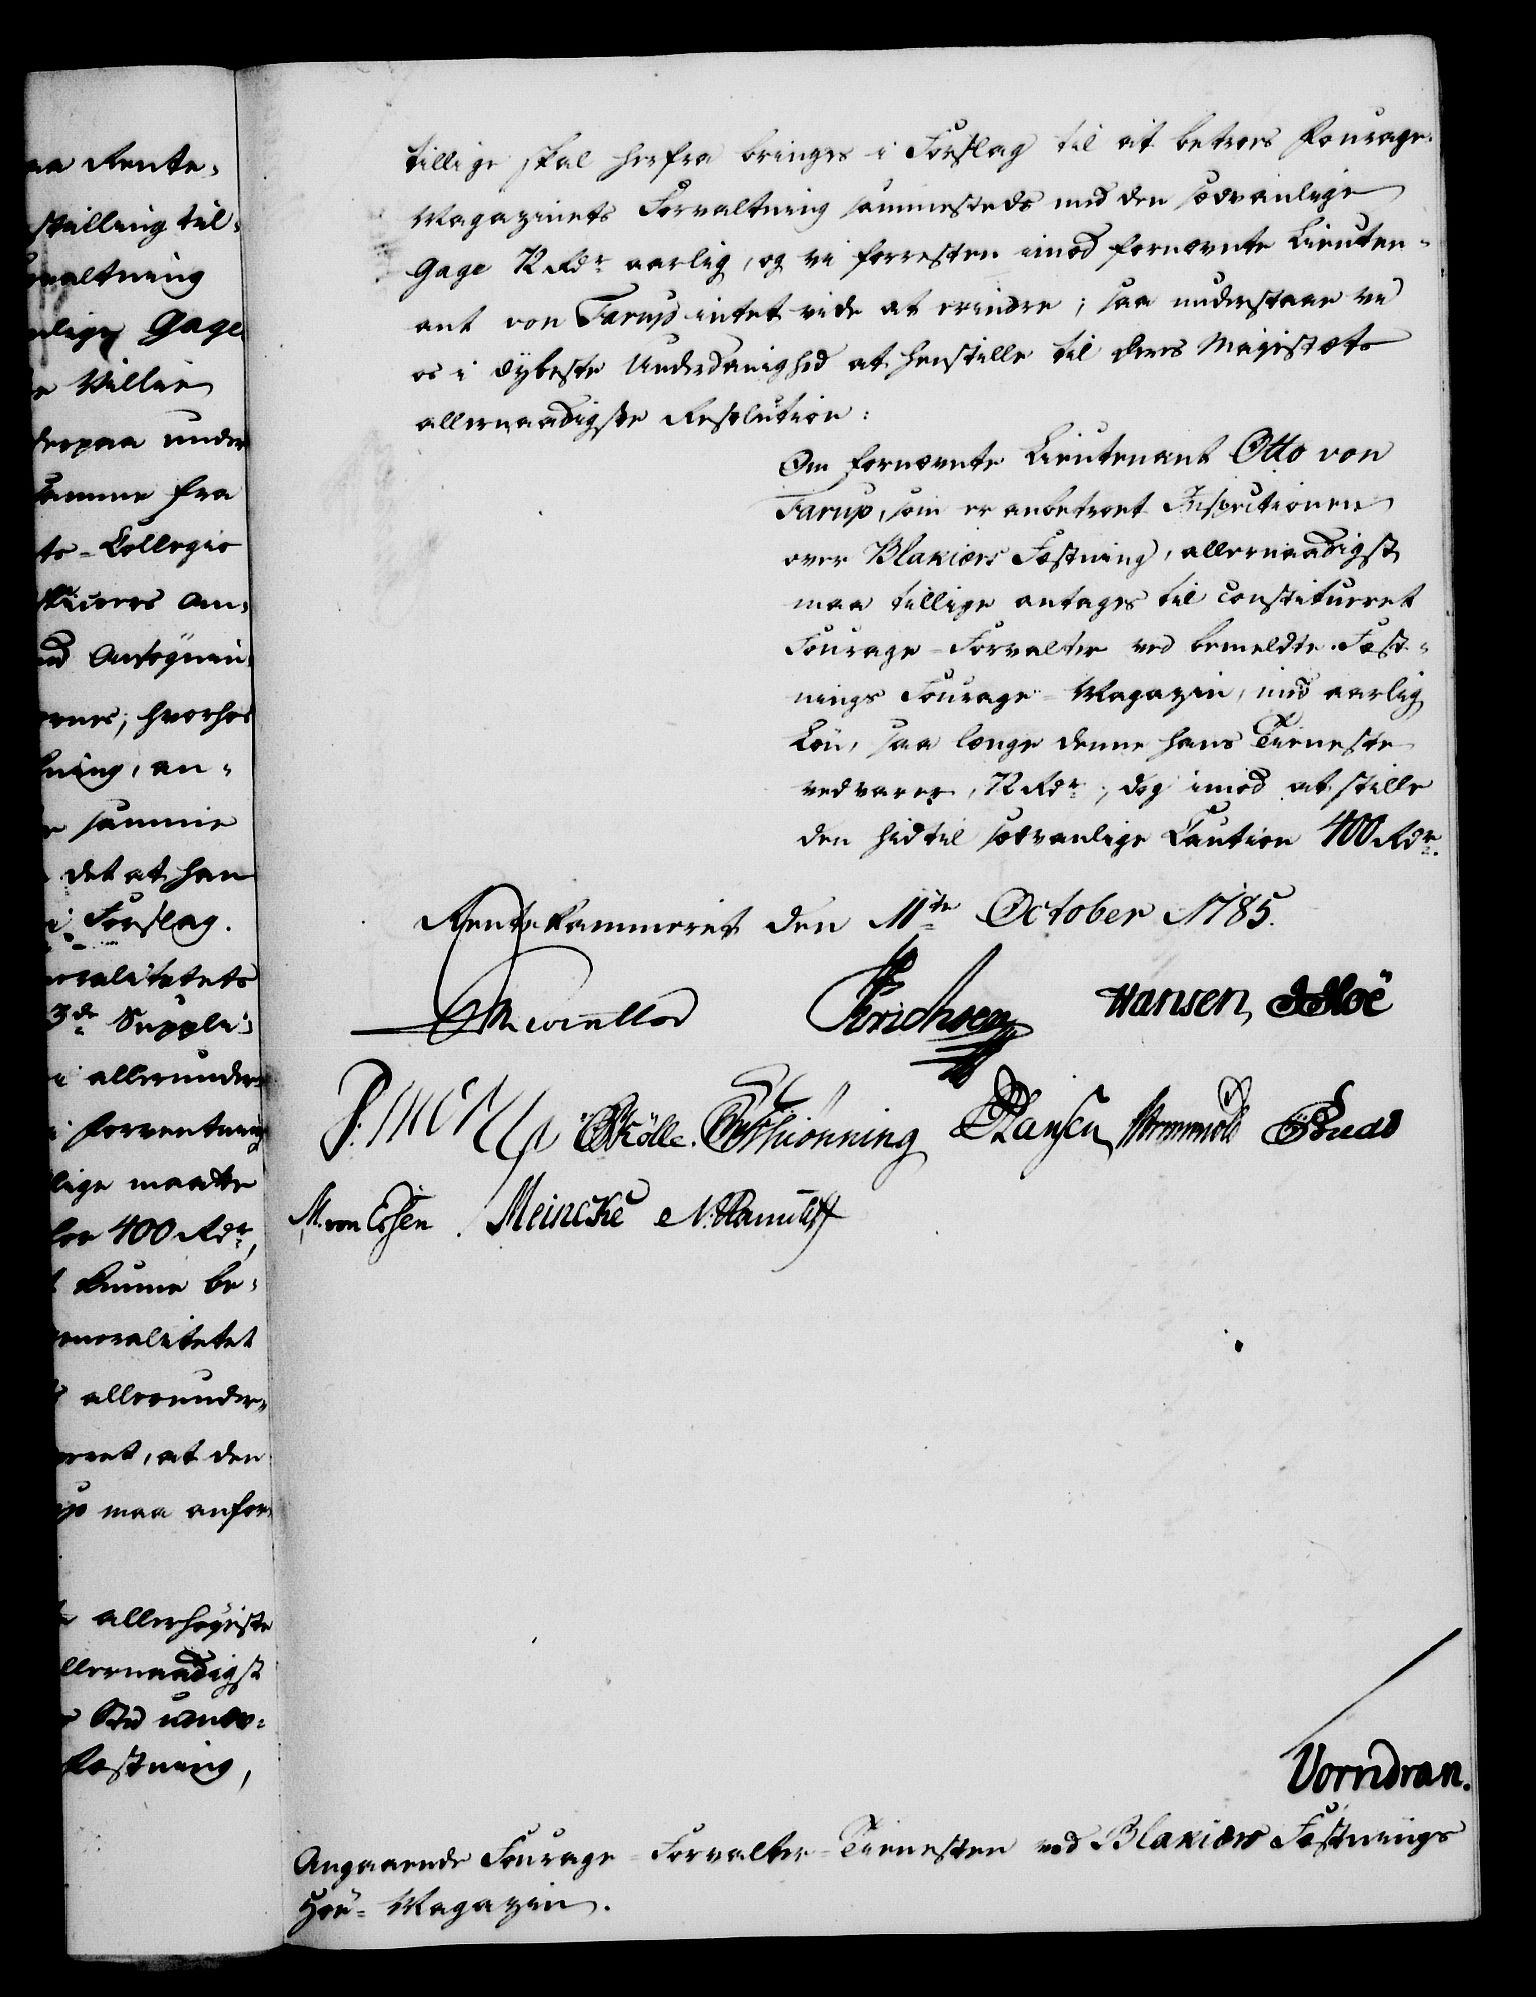 aa Rente-
stilling til-
rvaltning
nlige Gage
e Villie
derpaa under
samme fra
ts-Collegio
ne An-
ed Ansøgnin-
ernes, hvorhos
ning, an-
samme
det at han
i Forslag.
neralitetets
3de Suppli-
i allerunder-
i Forventning
lige maatte
400 Rdr,
kunne be-
eneralitetet
allerunder-
eret, at den
up maa anfør-
allerhøyeste
llernaadigst
Fæstning,
tillige skal herfra bringes i Forslag til at betroes Fourage-
Magazinets Forvaltning sammesteds med den sædvanlige
Gage 72 Rdr aarlig, og vi forresten imod fornævnte Lieuten-
ant von Tarup intet vide at erindre; saa understaae vi
os i dybeste Underdanighed at henstille til Deres Majestæts
allernaadigste Resolution:
Om fornævnte Lieutenant Otto von
Tarup, som er anbetroet Inspectionen
over Blakiærs Fæstning, allernaadigst
maa tillige antages til constitueret
Fourage-Forvalter ved bemeldte Fæst-
nings Fourage-Magazin, imod aarlig
Løn, saa længe denne hans Tieneste
vedvarer, 72 Rdr, dog imod at stille
den hidtil sædvanlige Caution 400 Rdr.
Rentekammeret den 11te October 1785.
Hansen,
Skölle. Shiønning Hansen
M. von Essen. Meincke
Vorndran.
Angaaende Fourage-Forvalter-Tienesten ved Blakiærs Fæstnings
Høe-Magazin.